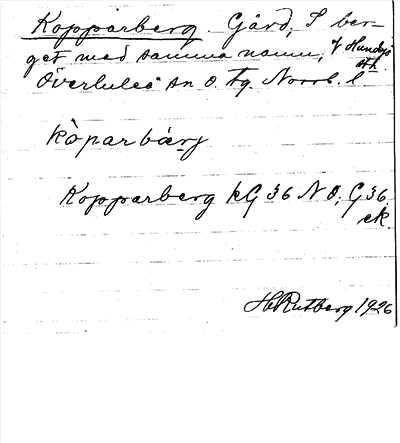 Kopparberg Gård, S ber-
get med samma namn, V Hundsjö
Överluleå sn o. tg. Norrb. l
kòparbárj
Kopparberg kG 36 N O, G 36
ek
H Rutberg 1926